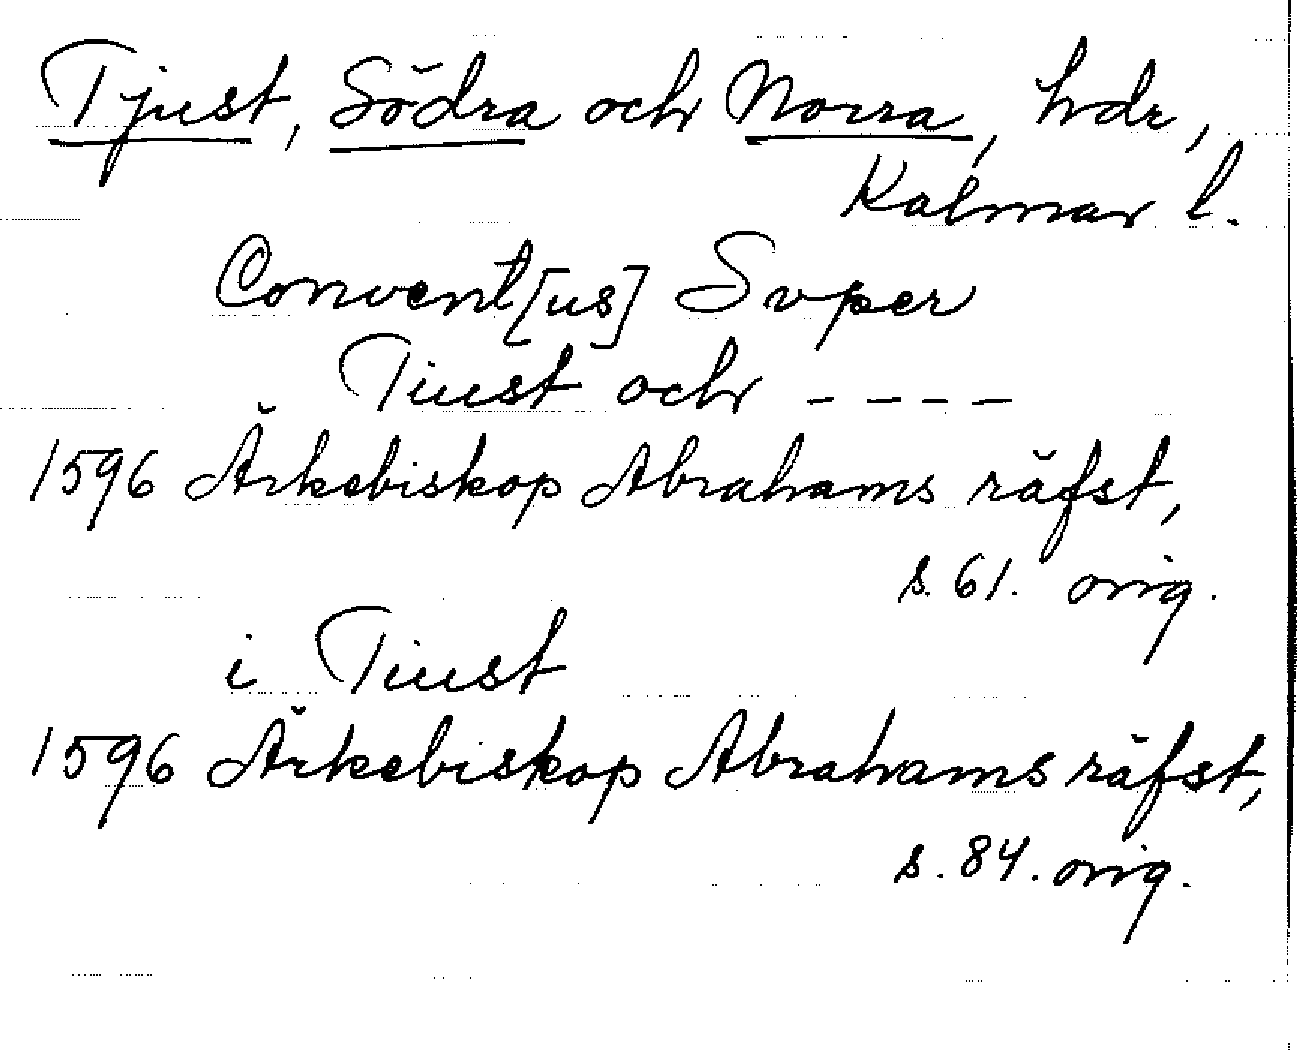 Tjust, Södra och Norra, hdr,
Kalmar l.
Convent[us] Svper
Tiust och ----
1596 Ärkebiskop Abrahams räfst,
s. 61. orig.
i Tiust
1596 Ärkebiskop Abrahams räfst,
s. 84. orig.